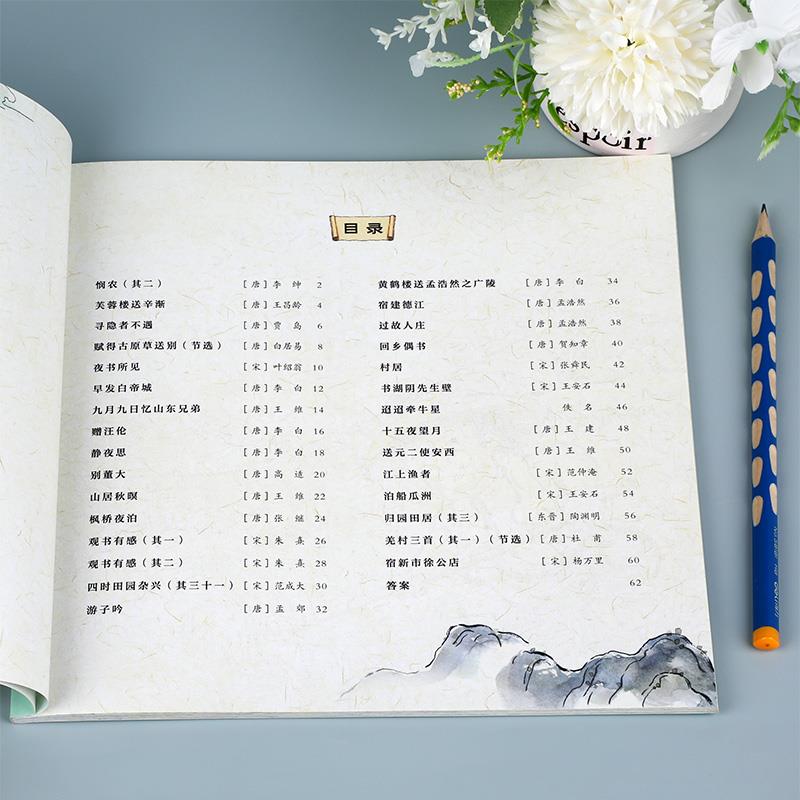 espoir
目录
悯农（其二） [唐] 李 绅 2
芙蓉楼送辛渐 [唐] 王昌龄 4
寻隐者不遇 [唐] 贾 岛 6
赋得古原草送别（节选） [唐] 白居易 8
夜书所见 [宋] 叶绍翁 10
早发白帝城 [唐] 李 白 12
九月九日忆山东兄弟 [唐] 王 维 14
赠汪伦 [唐] 李 白 16
静夜思 [唐] 李 白 18
别董大 [唐] 高 适 20
山居秋暝 [唐] 王 维 22
枫桥夜泊 [唐] 张 继 24
观书有感（其一） [宋] 朱 熹 26
观书有感（其二） [宋] 朱 熹 28
四时田园杂兴（其三十一） [宋] 范成大 30
游子吟 [唐] 孟 郊 32
黄鹤楼送孟浩然之广陵 [唐] 李 白 34
宿建德江 [唐] 孟浩然 36
过故人庄 [唐] 孟浩然 38
回乡偶书 [唐] 贺知章 40
村居 [宋] 张舜民 42
书湖阴先生壁 [宋] 王安石 44
迢迢牵牛星 佚 名 46
十五夜望月 [唐] 王 建 48
送元二使安西 [唐] 王 维 50
江上渔者 [宋] 范仲淹 52
泊船瓜洲 [宋] 王安石 54
归园田居（其三） [东晋] 陶渊明 56
羌村三首（其一）（节选） [唐] 杜 甫 58
宿新市徐公店 [宋] 杨万里 60
答案 62